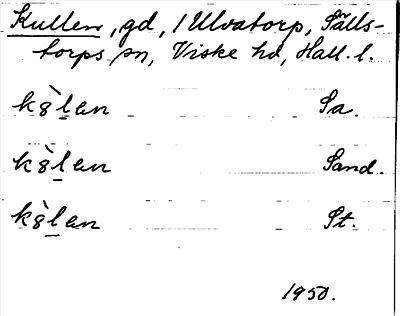 Kullen, gd, / Ulvatorp, Sälls-
torps sn, Viske hd, Hall. l.
k8̀l̲an Sa.
k8̀l̲an Sand.
k8̀l̲an St.
1950.